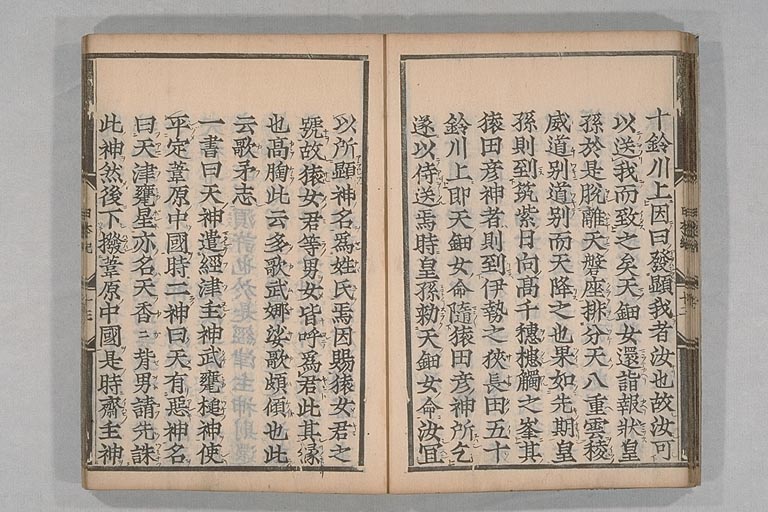 十鈴川上因曰發顯我者汝也故汝可
以送我而致之矣天鈿女還詣報狀皇
孫於是脫離天磐座排分天八重雲稜
威道別道別而天降之也果如先期皇
孫則到筑紫日向高千穗槵觸之峯其
猿田彥神者則到伊勢之狹長田五十
鈴川上卽天鈿女命隨猿田彥神所乞
遂以侍送焉時皇孫勅天鈿女命汝宜
以所顯神名爲姓氏焉因賜猿女君之
號故猿女君等男女皆呼爲君此其緣
也高胸此云多歌武娜娑歌頗傾也此
云歌矛志
一書曰天神遣經津主神武甕槌神使
平定葦原中國時二神曰天有惡神名
曰天津甕星亦名天香〻背男請先誅
此神然後下撥葦原中國是時齋主神